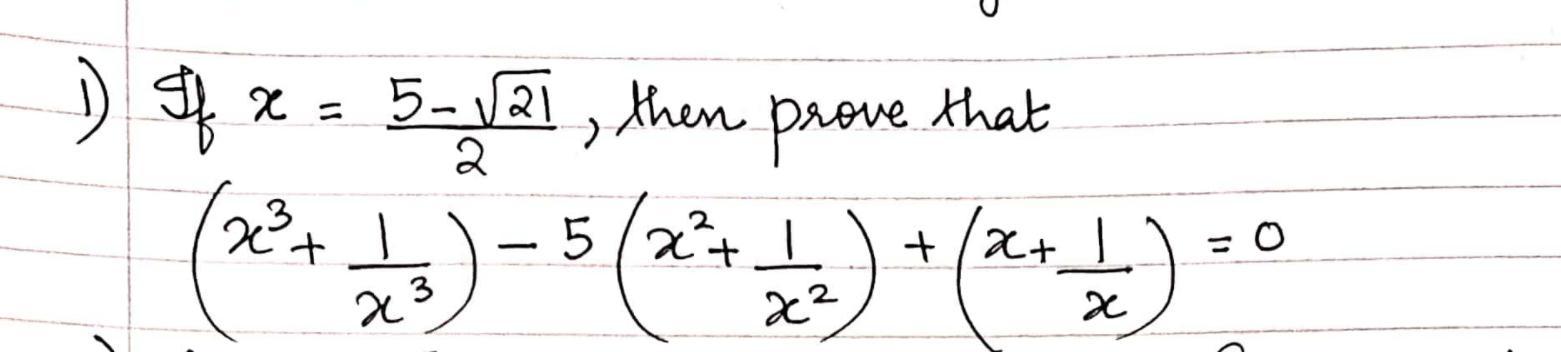 1) If x = (5-√21)/2, then prove that
(x³+ 1/x³) - 5 (x²+ 1/x²) + (x+ 1/x) = 0